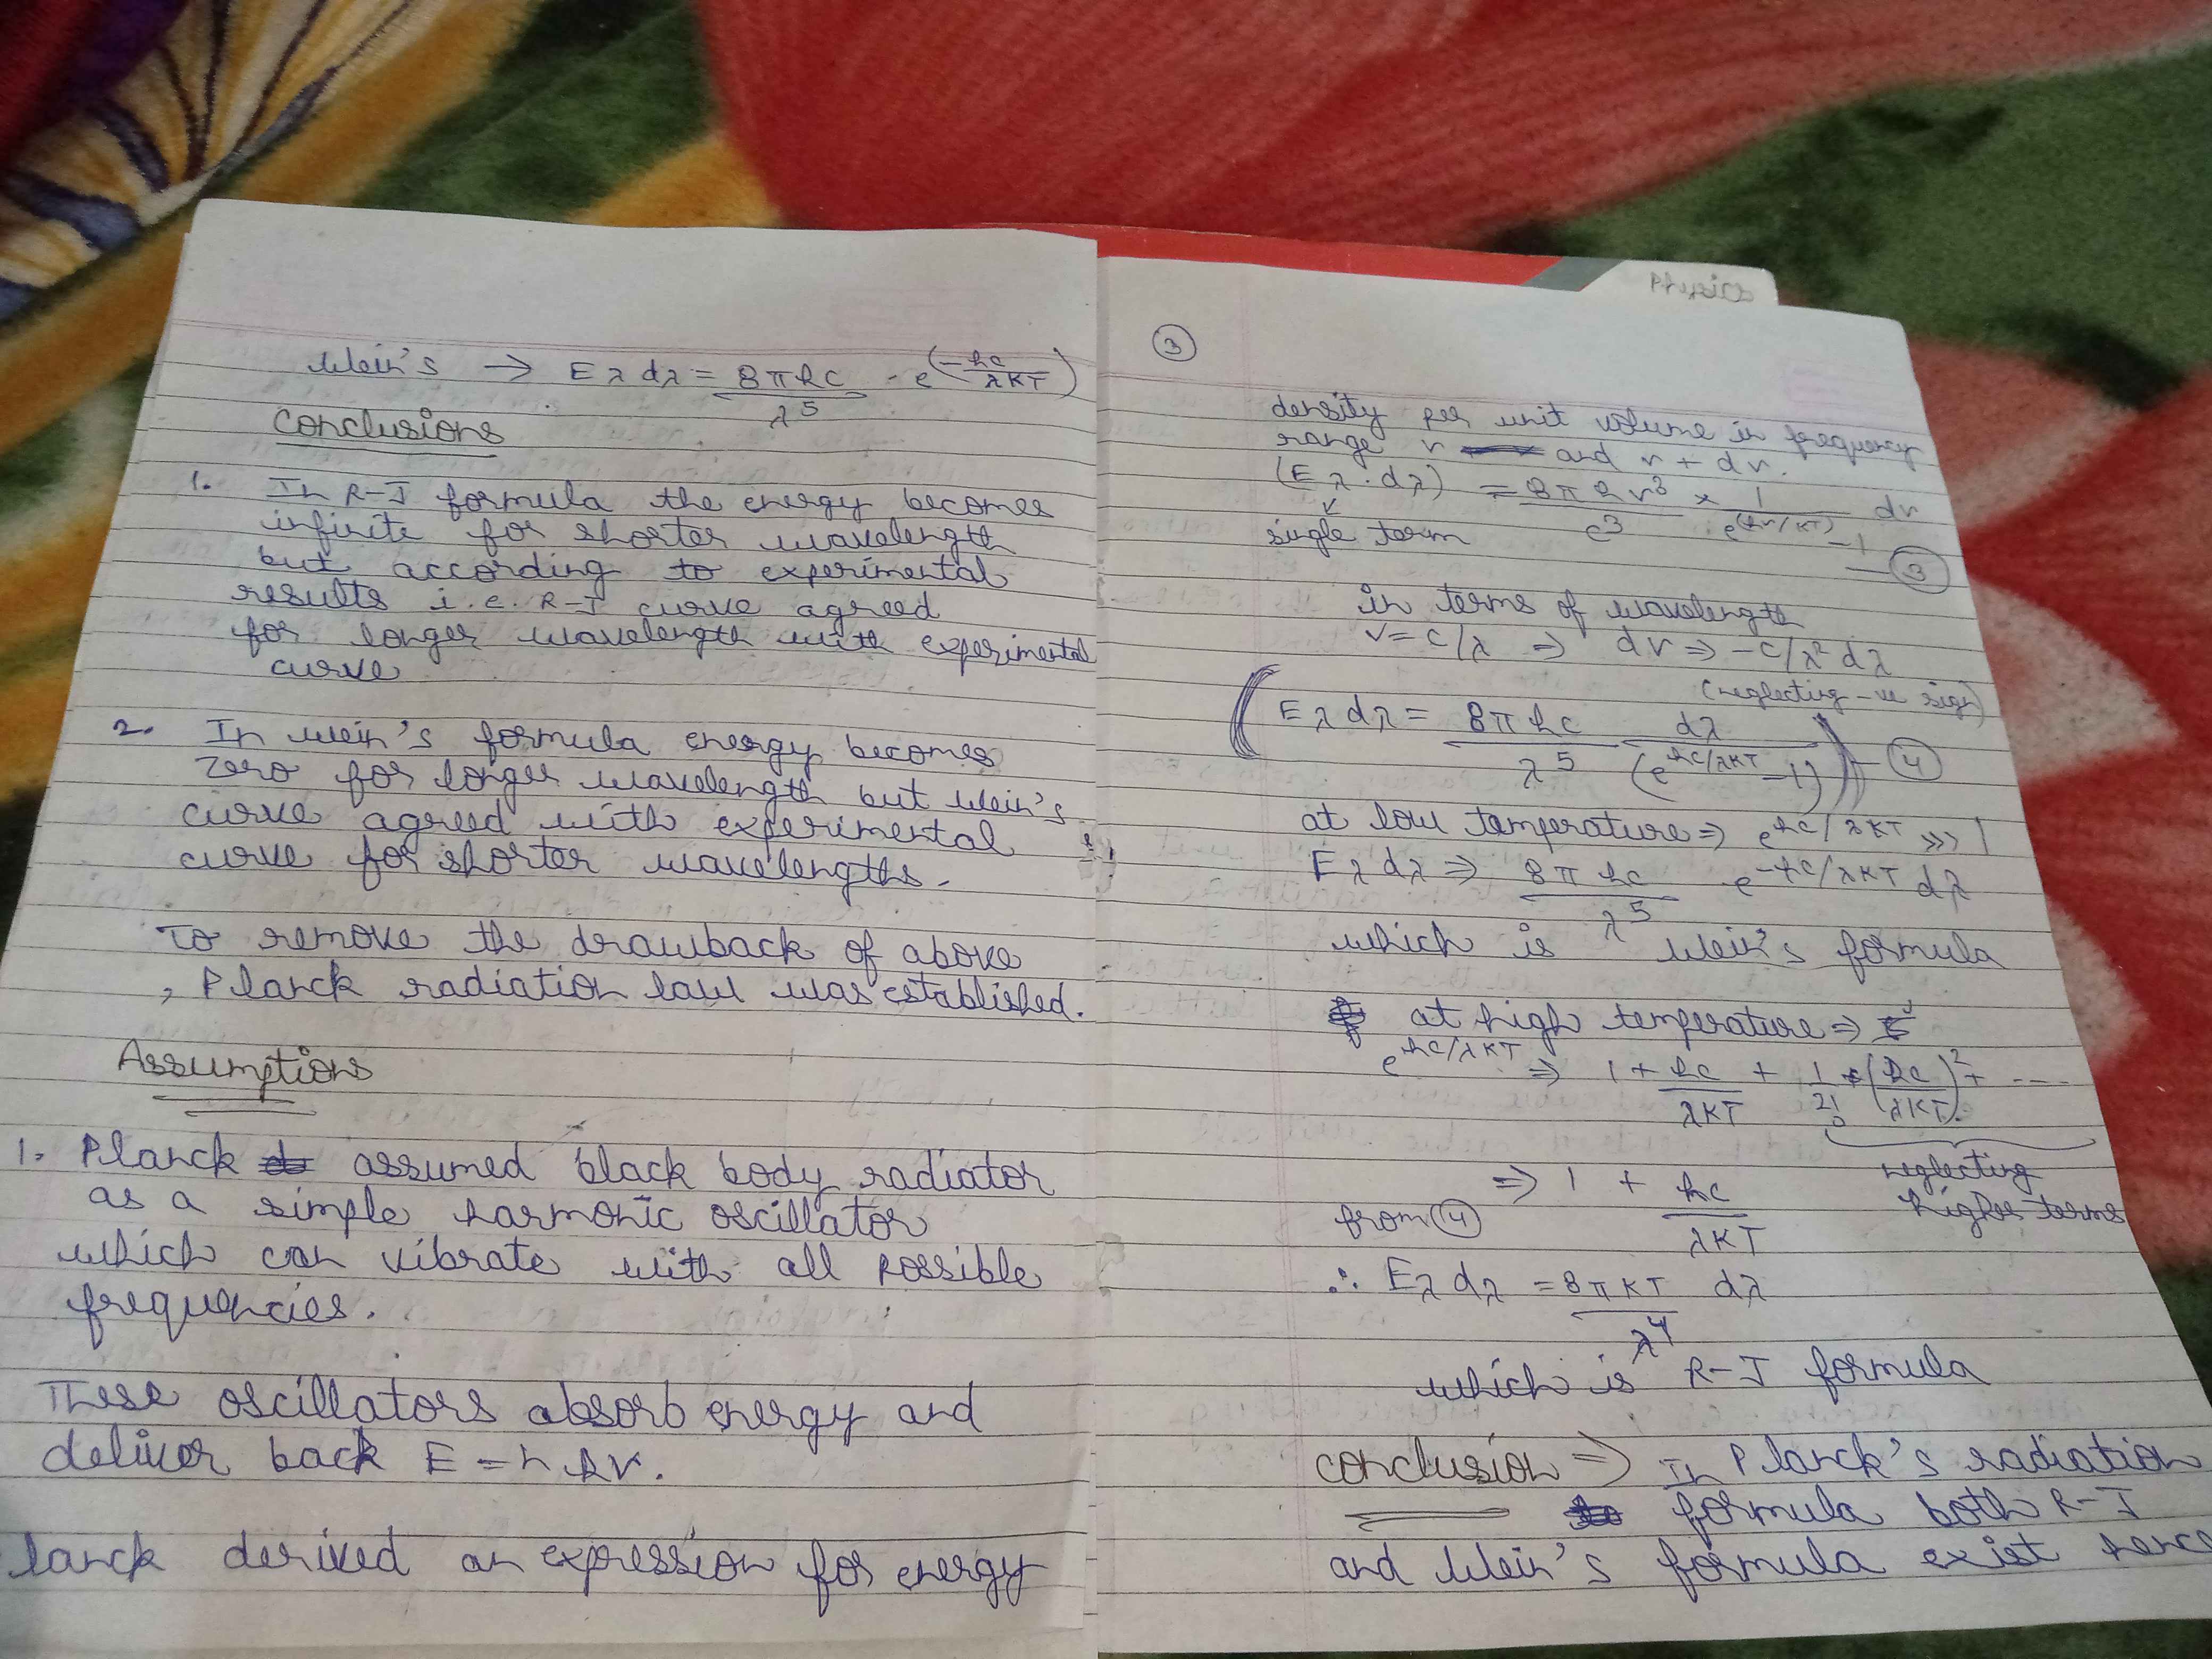 Wein's → Eλ dλ = 8πhc/λ⁵ · e^(-hc/λKT)
Conclusions
1. In R-J formula the energy becomes
infinite for shorter wavelength
but according to experimental
results i.e. R-J curve agreed
for longer wavelength with experimental
curve
2. In Wein's formula energy becomes
zero for longer wavelength but Wein's
curve agreed with experimental
curve for shorter wavelengths.
To remove the drawback of above
, Planck radiation law was established.
Assumptions
1. Planck assumed black body radiator
as a simple harmonic oscillator
which can vibrate with all possible
frequencies.
These oscillators absorb energy and
deliver back E = nhν.
lanck derived an expression for energy
Physics
3
density per unit volume in frequency
range ν and ν + dν.
(Eλ . dλ) = 8πhν³/c³ × 1/(e^(hν/KT) - 1) dν
single term
— 3
in terms of wavelength
ν = c/λ ⇒ dν ⇒ -c/λ² dλ
(neglecting -ve sign)
(Eλ dλ = 8πhc/λ⁵ dλ/(e^(hc/λKT) - 1)) — 4
at low temperature ⇒ e^(hc/λKT) >>> 1
Eλ dλ ⇒ 8πhc/λ⁵ e^(-hc/λKT) dλ
which is Wein's formula
at high temperature ⇒
e^(hc/λKT) ⇒ 1 + hc/λKT + 1/2! (hc/λKT)² + ----
neglecting
higher terms
⇒ 1 + hc/λKT
from 4
∴ Eλ dλ = 8πKT/λ⁴ dλ
which is R-J formula
conclusion ⇒ In Planck's radiation
formula both R-J
and Wein's formula exist hence